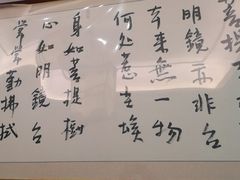 菩提
明鏡亦非台
本来無一物
何处惹尘埃
身如菩提樹
心如明鏡台
常常勤拂拭